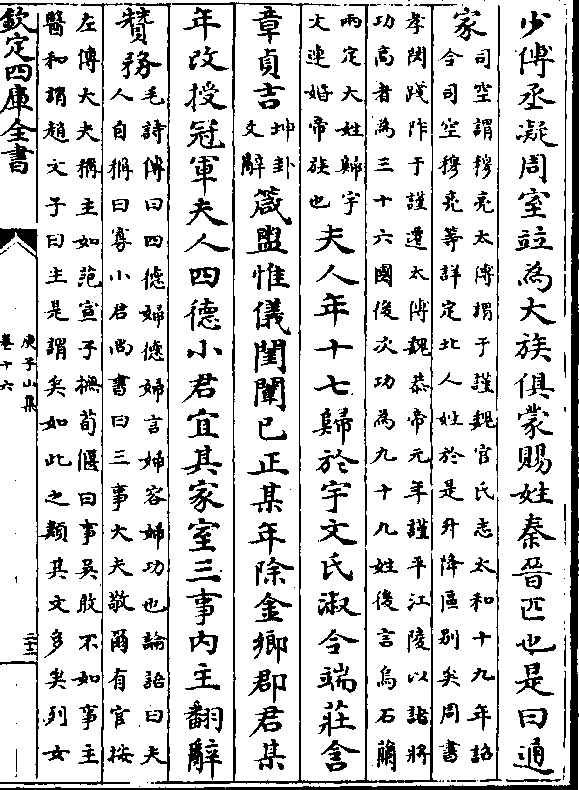 少傅丞凝周室竝為大族俱蒙賜姓秦晉匹也是曰通
家
司空謂穆亮太傅謂于謹魏官氏志太和十九年詔
令司空穆亮等詳定北人姓於是升降區别矣周書
孝閔踐阼于謹遷太傅魏恭帝元年謹平江陵以諸將
功高者為三十六國後次功為九十九姓後言烏石蘭
兩定大姓歸宇
文連婚帝族也
夫人年十七歸於宇文氏淑令端莊含
章貞吉
坤卦
文辭
箴盥惟儀閨闈已正某年除金鄉郡君某
年改授冠軍夫人四德小君宜其家室三事内主翻辭
贊務
毛詩傳曰四德婦德婦言婦容婦功也論語曰夫
人自稱曰寡小君尚書曰三事大夫敬爾有官按
左傳大夫稱主如范宣子撫荀偃曰事吳敢不如事主
醫和謂趙文子曰主是謂矣如此之類其文多矣列女
欽定四庫全書
庾子山集
卷十六